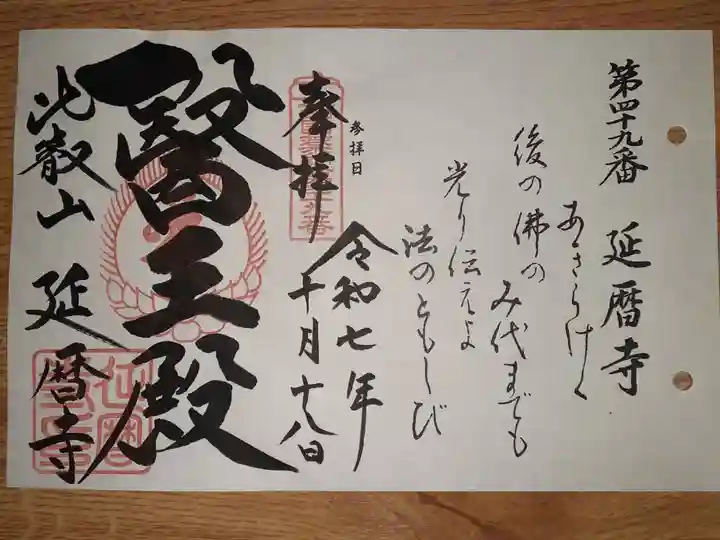 第四十九番 延暦寺
あきらけく
後の佛の
み代までも
光り伝えよ
法のともしび
参拝日
奉拝
令和七年
十月十八日
醫王殿
比叡山 延暦寺